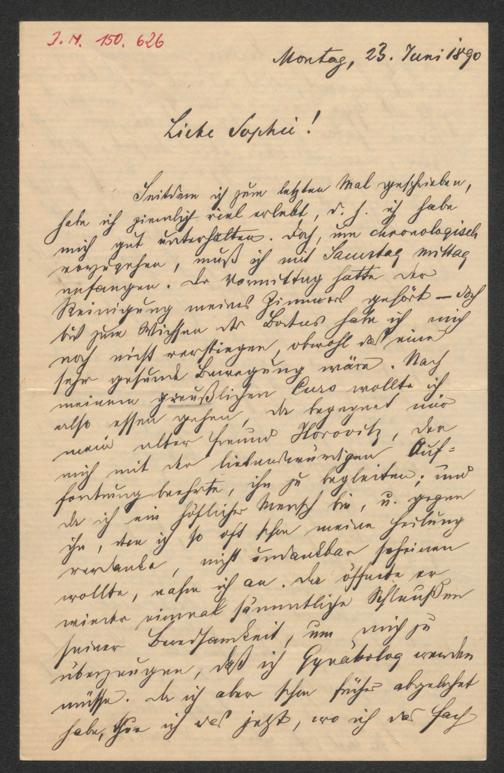 J. N. 150. 626
Montag, 23. Juni 1890
Liebe Sophie!
Seitdem ich zum letzten Mal geschrieben,
habe ich ziemlich viel erlebt, d. h. ich habe
mich gut unterhalten. Doch, um chronologisch
vorzugehen, muß ich mit Samstag mittag
anfangen. Der Vormittag hatte der
Reinigung meines Zimmers gehört – doch
bis zum Wichsen des Bodens habe ich mich
noch nicht verstiegen, obwohl das eine
sehr gesunde Bewegung wäre. Nach
meinem greußlichen Curs wollte ich
also essen gehen, da begegnet mir
mein alter Freund Horovitz, der
mich mit der liebenswürdigen Auf-
forderung beehrte, ihn zu begleiten; und
da ich ein höflicher Mensch bin, u. gegen
ihn, dem ich so oft schon meine Heilung
verdanke, nicht undankbar scheinen
wollte, nahm ich an. Da öffnete er
wieder einmal sämmtliche Schleußen
seiner Beredsamkeit, um mich zu
überzeugen, daß ich Gynäkolog werden
müsse. Da ich aber schon früher abgelehnt
habe, thue ich das jetzt, wo ich das Fach